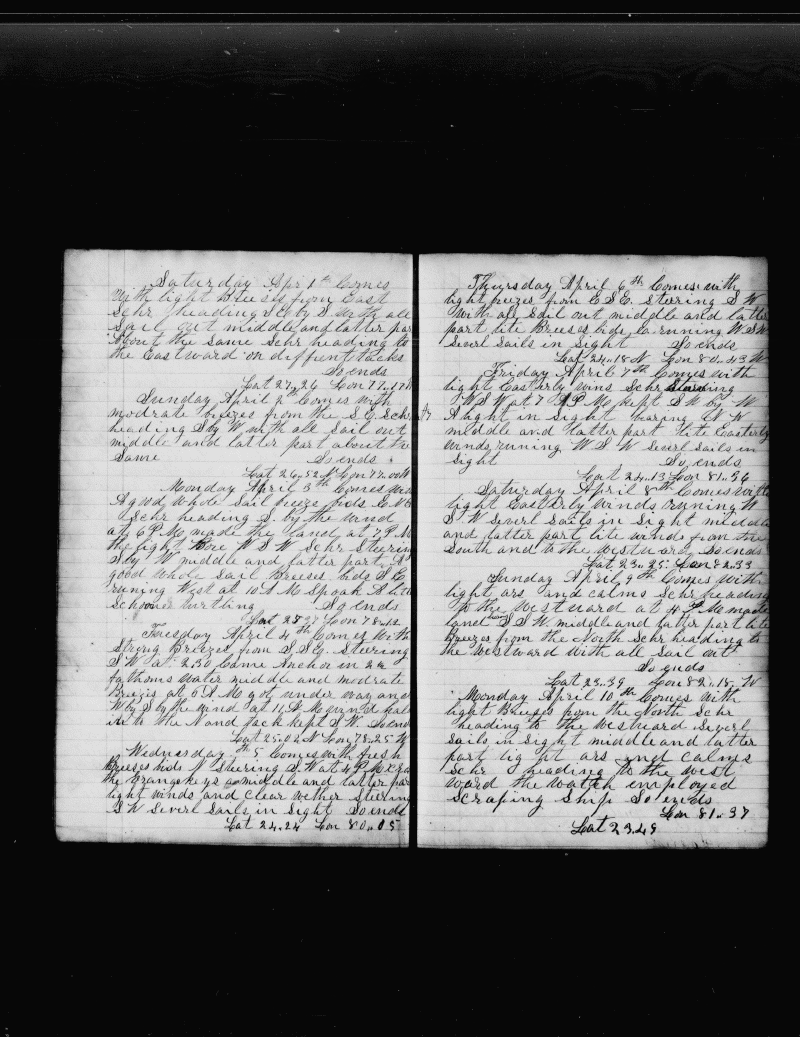 Saturday Apr 1th Comes
With light breeses from East
Schr heading S by S with all
Sail out middle and latter par
About the Same Schr heading to
the Eastward on diffrent tacks
So ends
Lat 27,,26 Lon 77,,17
Sunday April 2th Comes with
modrate breezes from the S.E. Schr
heading S by W with all Sail out
middle and latter part about the
Same So ends
Lat 26,,52 N Lon 77,,00 W
Monday April 3th Comes with
A good whole Sail breeze bids E N E
Schr heading S. by the wind
at 6 P.M made the land at 7 P M
the light bore W S W Schr Steering
S by W middle and latter part A
good whole Sail Breeses bids S E
runing West at 10 A M Spoak A
Schooner So ends
Lat 25 27 Lon 78,,12
Tuesday April 4th Comes with
Strong Breezes from S.S.E. Steering
S W at 2.30 Came Anchor in 2
fathoms water middle and modrate
Breezes at 6 P.M got under way and
W by S the wind at 11 A.M
to the N and Jack kept S W. So end
Lat 25,,02 N Lon 78,,25 W
Wednesday th 5 Comes with fresh
Breeses bids N Steering S.W at 4 P.M
the Orange keys middle and latter par
light winds and Clear wether Steering
S W Severl Sails in Sight So ends
Lat 24,,24 Lon 80,,05
Thursday April 6th Comes with
light brezes from E S E. Steering S W
With all Sail out middle and latter
part lite Breeses bids E. running W S W
Severl Sails in Sight So ends
Lat 24,,18 N Lon 80,,43 W
Friday April 7th Comes with
light Easterly wins Schr Steering
W S W at 7 P M kept S W by W
A light in Sight bearing N W
middle and latter part lite Easterly
winds, runing W S W Severl Sails in
Sight So ends
Lat 24,,13 Lon 81,,36
Saturday April 8th Comes with
light Easterly Winds running W
S W Severl Sails in Sight middle
and latter part lite winds from the
South and to the Westward So ends
Lat 23,,25 Lon 82,,33
Sunday April 9th Comes with
light ars and calms Schr heading
to the Westward at 4 P M made
land S S W middle and latter part lite
Breezes from the North Schr heading to
the Westward with all Sail out
So ends
Lat 23,,39 Lon 82,,15, W
Monday April 10th Comes With
light Breeses from the North Schr
heading to the Westward Severl
Sails in Sight middle and latter
part light ars and calms
Schr heading to the West
ward the watch imployed
Scraping Ship So ends
Lon 81,,37
Lat 23,49